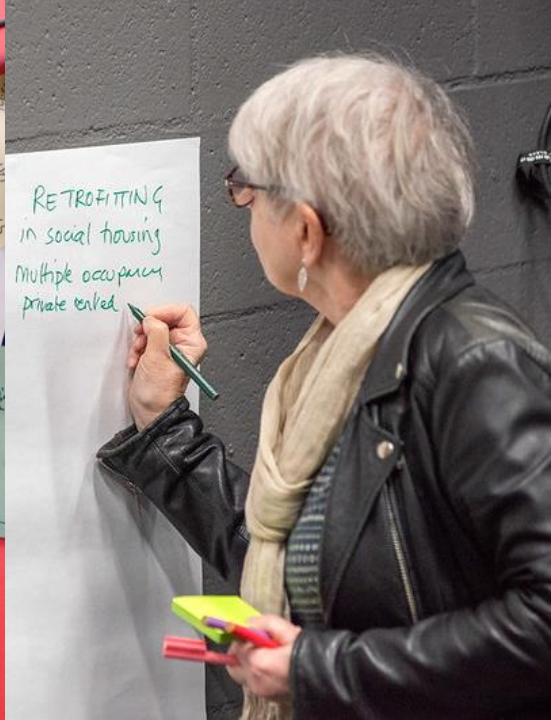 RETROFITTING
in social housing
Multiple occupancy
private rented